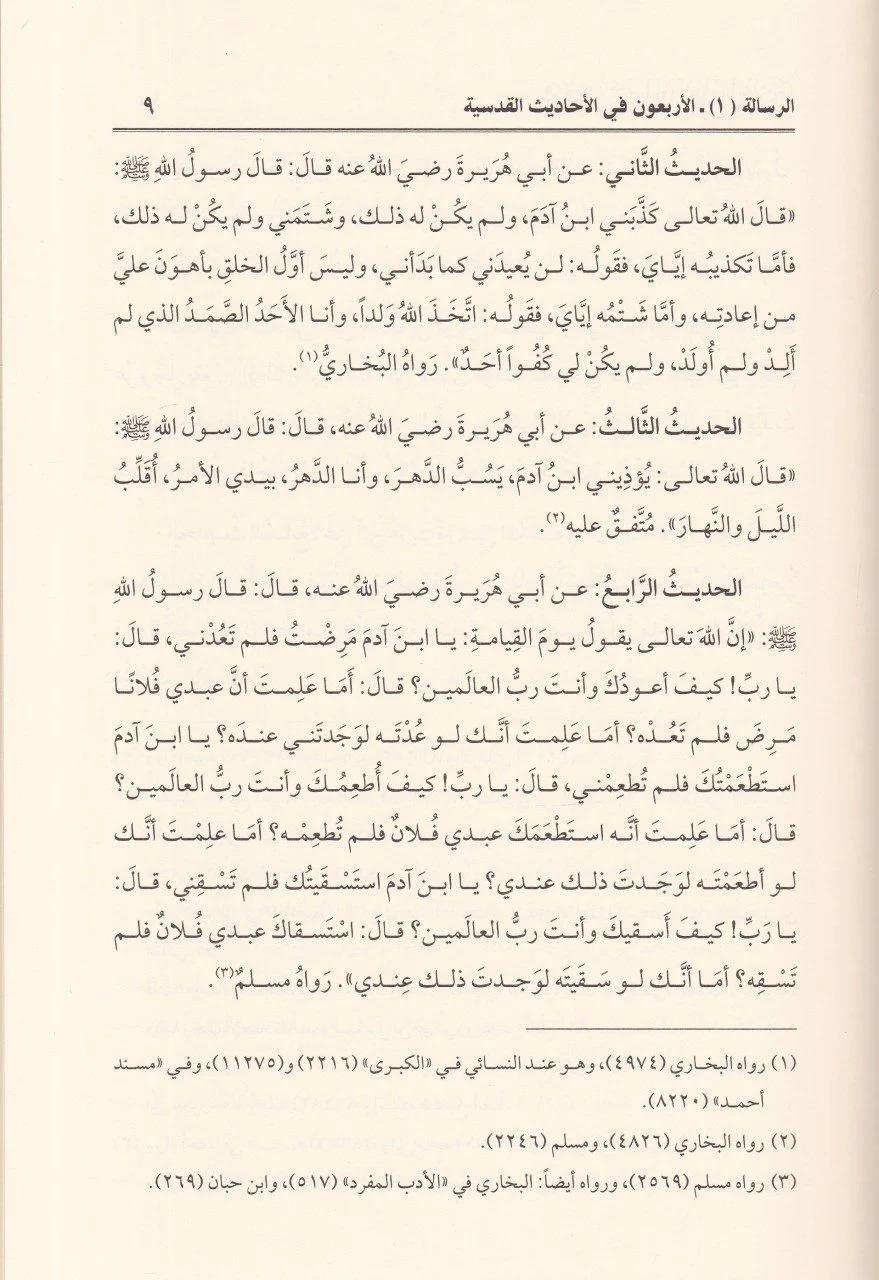 الرسالة (١) ـ الأربعون في الأحاديث القدسية ٩
الحديـثُ الثَّاني: عـن أبـي هُرَيـرةَ رضـيَ اللهُ عنه قالَ: قـالَ رسـولُ اللهِ ﷺ:
«قـالَ اللهُ تعالـى كَذَّبَنـي ابـنُ آدَمَ، ولـم يكُـنْ له ذلـك، وشَـتَمَني ولم يكُنْ لـه ذلك،
فأمَّـا تَكذيبُـه إيَّـايَ، فقَولُـه: لـن يُعيدَني كما بَدَأني، وليـسَ أوَّلُ الخلقِ بأهوَنَ عليَّ
مـن إعادتِـه، وأمَّا شَـتْمُه إيَّايَ، فقَولُـه: اتَّخَـذَ اللهُ وَلداً، وأنـا الأَحَدُ الصَّمَـدُ الذي لم
أَلِـدْ ولـم أُولَدْ، ولـم يكُنْ لي كُفُـواً أحَـدٌ». رَواهُ البُخاريُّ(١).
الحديـثُ الثَّالـثُ: عـن أبي هُرَيـرةَ رضـيَ اللهُ عنه، قـالَ: قالَ رسـولُ اللهِ ﷺ:
«قـالَ اللهُ تعالـى: يُؤذِينـي ابـنُ آدمَ، يَسُـبُّ الدَّهـرَ، وأنـا الدَّهرُ، بيـدي الأمـرُ، أُقَلِّبُ
اللَّيـلَ والنَّهـارَ». مُتَّفـقٌ عليه(٢).
الحديـثُ الرَّابـعُ: عـن أبـي هُرَيـرةَ رضـيَ اللهُ عنـه، قـالَ: قـالَ رسـولُ اللهِ
ﷺ: «إنَّ اللهَ تعالـى يقـولُ يـومَ القِيامـةِ: يـا ابـنَ آدمَ مَرِضْـتُ فلـم تَعُدْنـي، قـالَ:
يـا ربِّ! كيـفَ أعـودُكَ وأنـتَ ربُّ العالَمـين؟ قـالَ: أَمَـا عَلِمـتَ أنَّ عبـدي فُلانًـا
مَـرِضَ فلـم تَعُـدْه؟ أمَـا عَلِمـتَ أنَّـك لـو عُدْتَـه لوَجَدتَنـي عنـدَه؟ يـا ابـنَ آدمَ
اسـتَطْعَمْتُكَ فلـم تُطعِمْنـي، قـالَ: يـا ربِّ! كيـفَ أُطعِمُـكَ وأنـتَ ربُّ العالَميـن؟
قـالَ: أمَـا عَلِمـتَ أنَّـه اسـتَطْعَمَكَ عبـدي فُـلانٌ فلـم تُطعِمْـه؟ أمَـا علِمْـتَ أنَّـك
لـو أطعَمْتَـه لوَجَـدتَ ذلـك عنـدي؟ يـا ابـنَ آدمَ استَسْـقَيتُك فلـم تَسْـقِني، قـالَ:
يـا رَبِّ! كيـفَ أَسـقيكَ وأنـتَ ربُّ العالَميـن؟ قـالَ: اسْتَسـقاكَ عبـدي فُـلانٌ فلـم
تَسْـقِه؟ أمَـا أنَّـك لـو سَـقَيتَه لوَجـدتَ ذلـك عِنـدي». رَواهُ مسـلمٌ(٣).
(١) رواه البخاري (٤٩٧٤)، وهـو عنـد النسائي في «الكبرى» (٢٢١٦) و(١١٢٧٥)، وفـي «مسند
أحمـد» (٨٢٢٠).
(٢) رواه البخاري (٤٨٢٦)، ومسلم (٢٢٤٦).
(٣) رواه مسلم (٢٥٦٩)، ورواه أيضاً: البخاري في «الأدب المفرد» (٥١٧)، وابن حبان (٢٦٩).